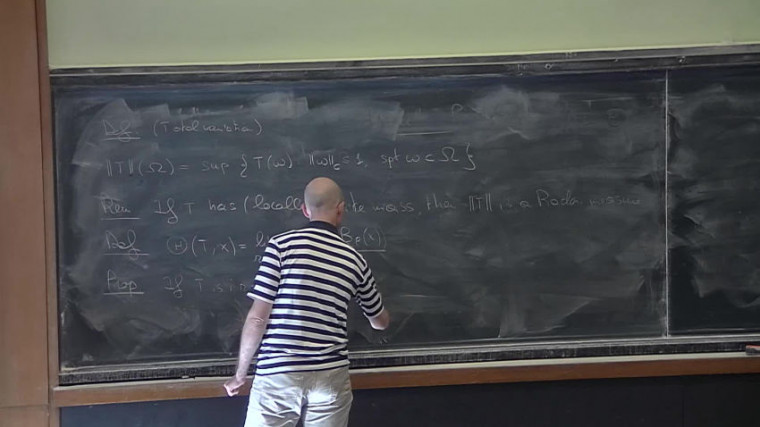 Def (Total variation)
‖T‖(Ω) = sup { T(ω) ‖ω‖ ≤ 1, spt ω ⊂ Ω }
Rem If T has (locally mass, then ‖T‖ is a Radon measure
Def Θ(T,x) =
Prop If T is